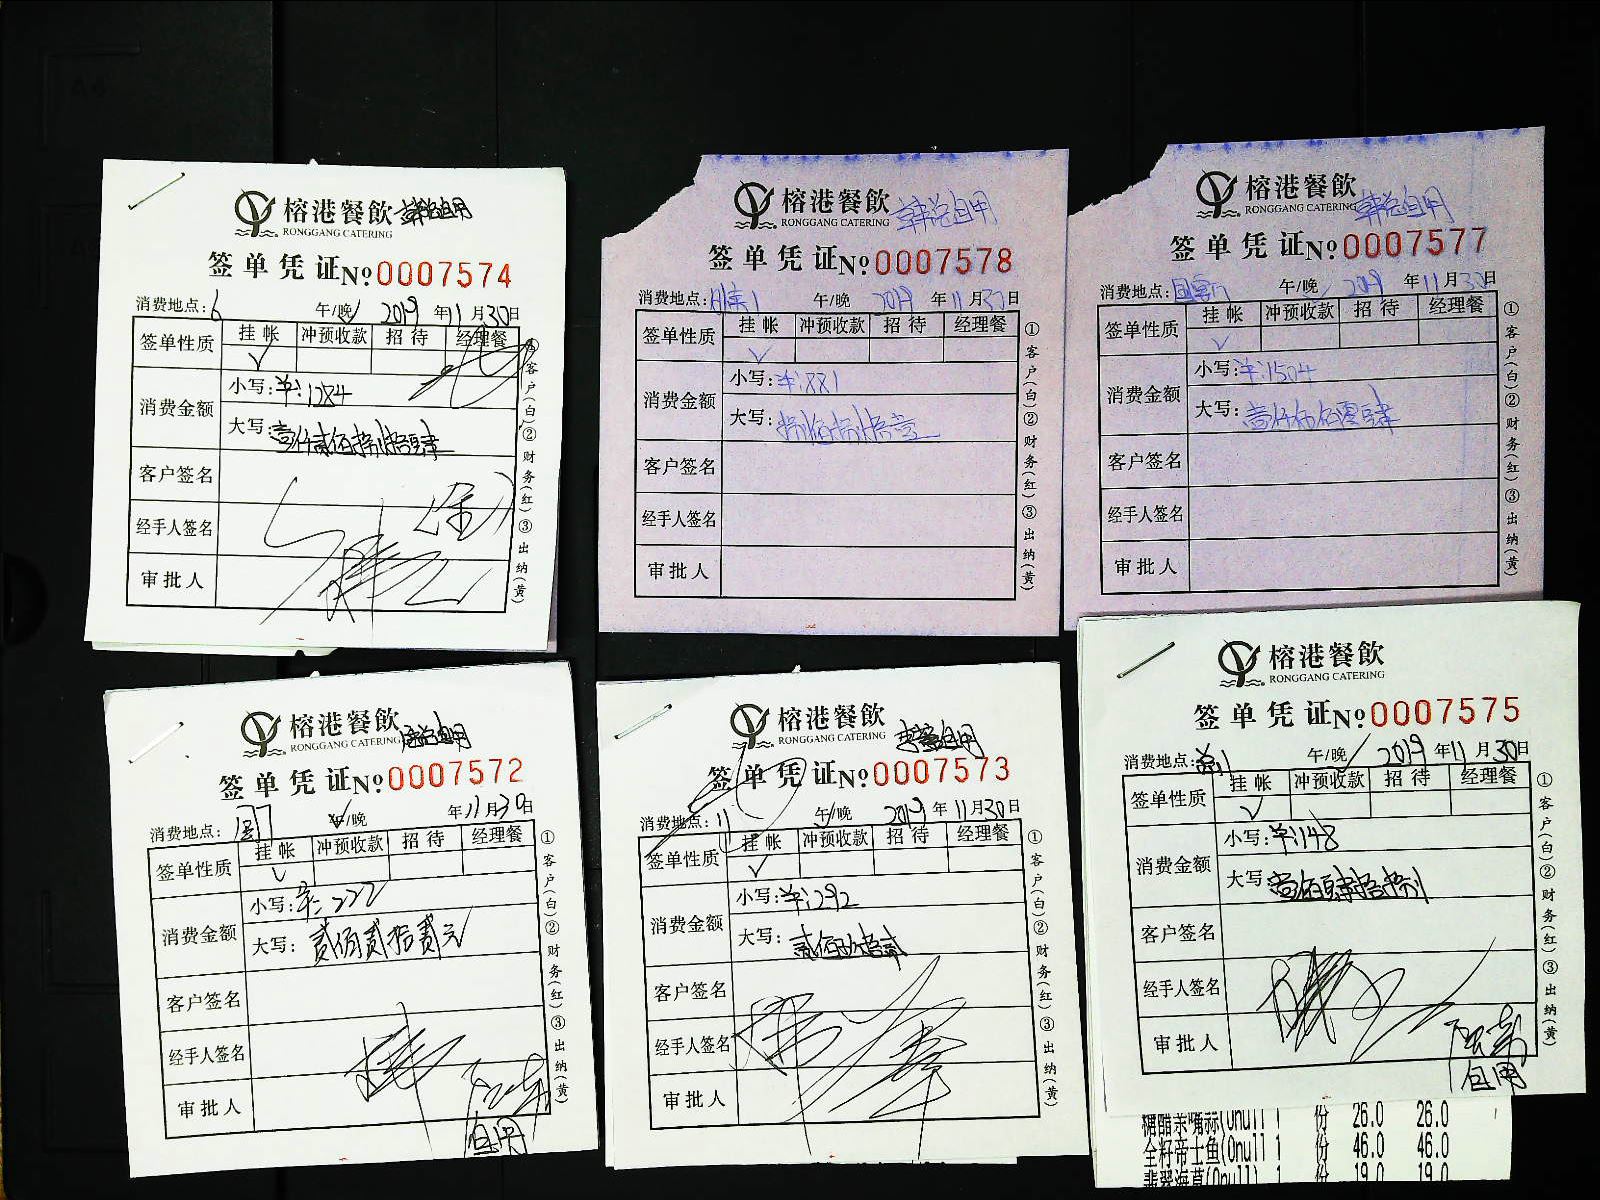 榕港餐飲 韩总自用
RONGGANG CATERING
签单凭证 No 0007574
消费地点: 6 午/晚 2019年11月30日
签单性质 挂帐 冲预收款 招待 经理餐
✓
消费金额 小写: ¥:1284
大写: 壹仟贰佰捌拾肆
客户签名
经手人签名
审批人
①客户(白)②财务(红)③出纳(黄)
榕港餐飲 韩总自用
RONGGANG CATERING
签单凭证 No 0007578
消费地点: 午/晚 2019年11月30日
签单性质 挂帐 冲预收款 招待 经理餐
✓
消费金额 小写: ¥:881
大写: 捌佰捌拾壹
客户签名
经手人签名
审批人
①客户(白)②财务(红)③出纳(黄)
榕港餐飲 韩总自用
RONGGANG CATERING
签单凭证 No 0007577
消费地点: 午/晚 2019年11月30日
签单性质 挂帐 冲预收款 招待 经理餐
✓
消费金额 小写: ¥:1504
大写: 壹仟伍佰零肆
客户签名
经手人签名
审批人
①客户(白)②财务(红)③出纳(黄)
榕港餐飲 自用
RONGGANG CATERING
签单凭证 No 0007572
消费地点: 午/晚 年11月30日
签单性质 挂帐 冲预收款 招待 经理餐
✓
消费金额 小写: ¥:222
大写: 贰佰贰拾贰元
客户签名
经手人签名
审批人
自用
①客户(白)②财务(红)③出纳(黄)
榕港餐飲 自用
RONGGANG CATERING
签单凭证 No 0007573
消费地点: 11 午/晚 2019年11月30日
签单性质 挂帐 冲预收款 招待 经理餐
✓
消费金额 小写: ¥:292
大写: 贰佰玖拾贰
客户签名
经手人签名
审批人
①客户(白)②财务(红)③出纳(黄)
榕港餐飲
RONGGANG CATERING
签单凭证 No 0007575
消费地点: 午/晚 2019年11月30日
签单性质 挂帐 冲预收款 招待 经理餐
✓
消费金额 小写: ¥:148
大写: 壹佰肆拾捌
客户签名
经手人签名
审批人
自用
①客户(白)②财务(红)③出纳(黄)
糖醋亲嘴蒜(0null 1 份 26.0 26.0
全籽帝士鱼(0null 1 份 46.0 46.0
翡翠海草(0null 1 份 19.0 19.0